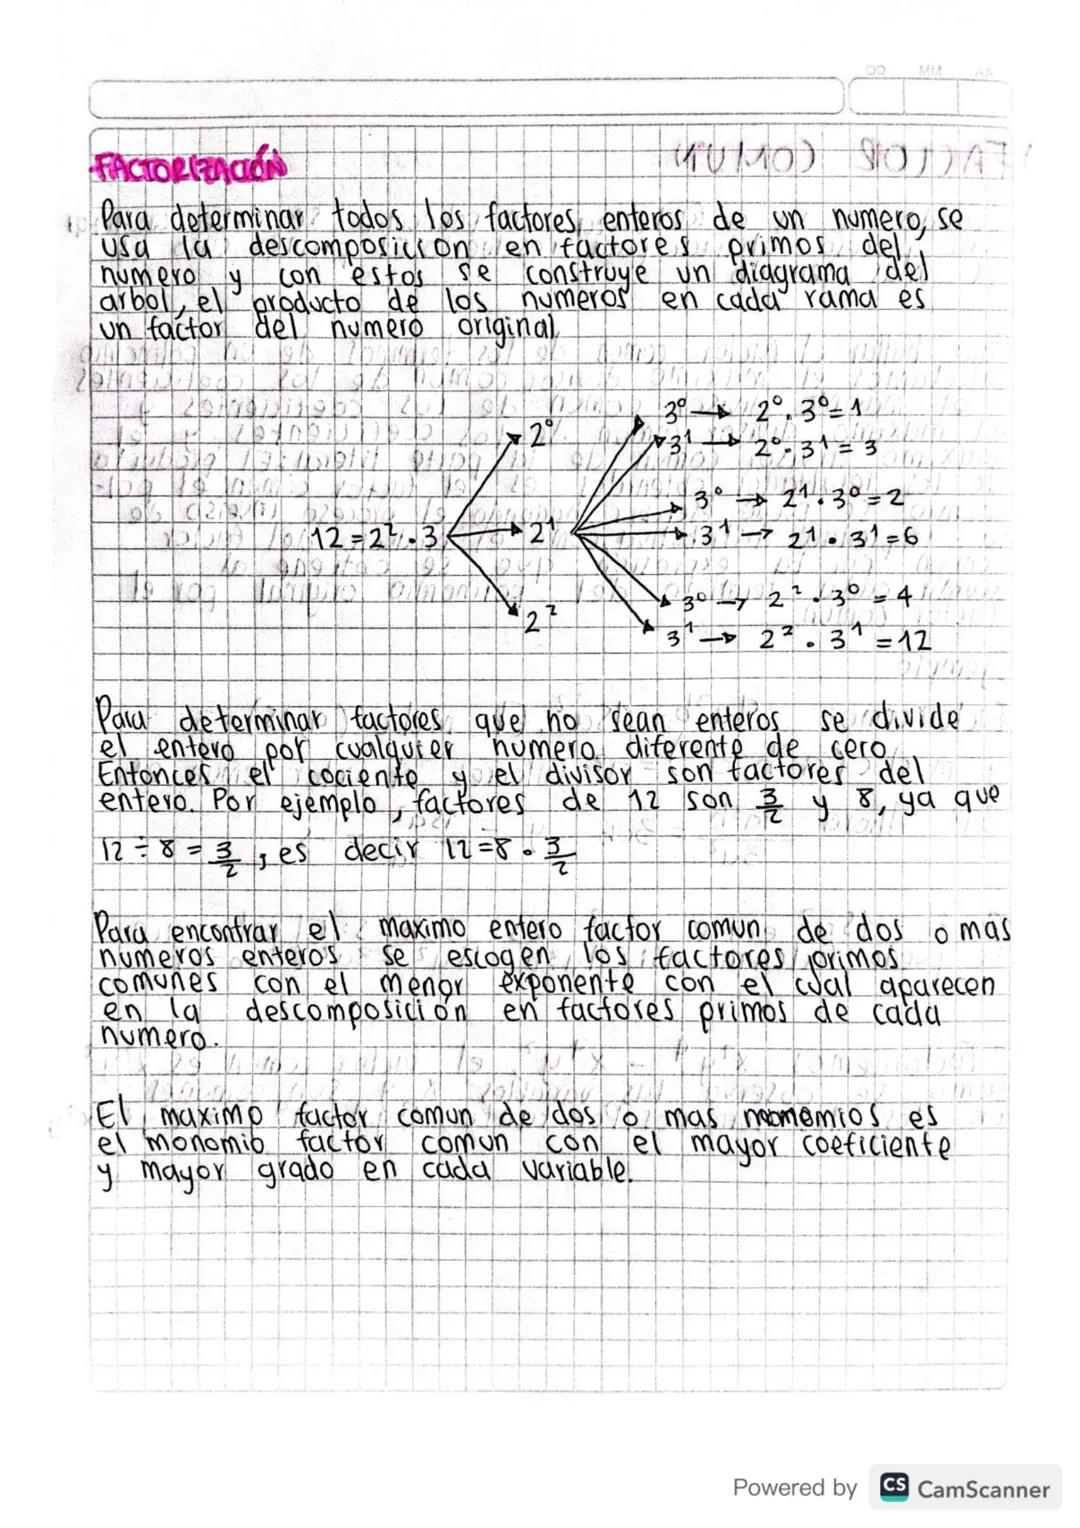 DD MM AA
FACTORIZACIÓN
Para determinar todos los factores enteros de un numero, se
usa la descomposición en factores primos del
numero y con estos se construye un diagrama del
arbol, el producto de los numeros en cada rama es
un factor del numero original
3⁰ → 2⁰ . 3⁰ = 1
2⁰
3¹ → 2⁰ . 3¹ = 3
3⁰ → 2¹ . 3⁰ = 2
12 = 2² . 3 2¹ 3¹ → 2¹ . 3¹ = 6
3⁰ → 2² . 3⁰ = 4
2²
3¹ → 2² . 3¹ = 12
Para determinar factores que no sean enteros se divide
el entero por cualquier numero diferente de cero
Entonces el cociente y el divisor son factores del
entero. Por ejemplo, factores de 12 son 3/2 y 8, ya que
12 ÷ 8 = 3/2, es decir 12 = 8 . 3/2
Para encontrar el maximo entero factor comun de dos o mas
numeros enteros se escogen los factores primos
comunes con el menor exponente con el cual aparecen
en la descomposición en factores primos de cada
numero.
El maximo factor comun de dos o mas momemios es
el monomio factor comun con el mayor coeficiente
y mayor grado en cada variable.
Powered by CS CamScanner